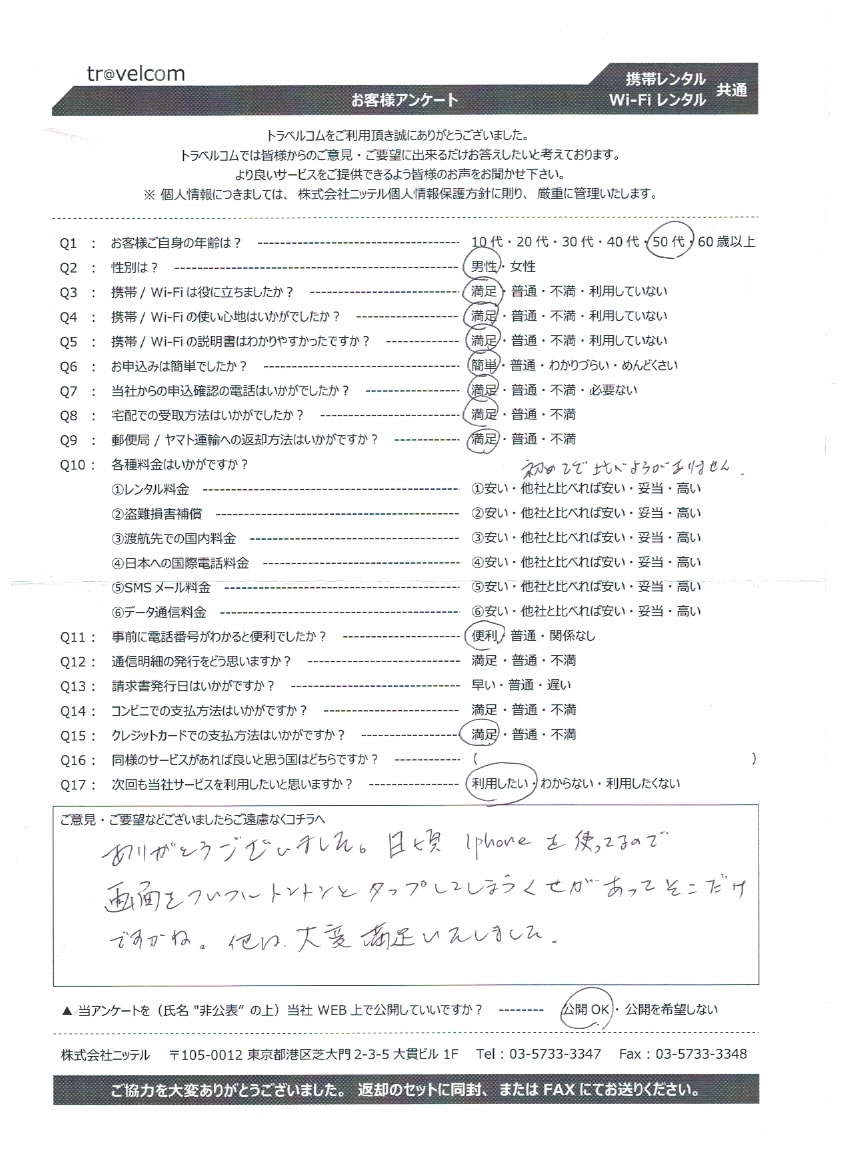 tr@velcom
お客様アンケート
携帯レンタル
Wi-Fi レンタル
共通
トラベルコムをご利用頂き誠にありがとうございました。
トラベルコムでは皆様からのご意見・ご要望に出来るだけお答えしたいと考えております。
より良いサービスをご提供できるよう皆様のお声をお聞かせ下さい。
※ 個人情報につきましては、株式会社ニッテル個人情報保護方針に則り、厳重に管理いたします。
Q1 ： お客様ご自身の年齢は？ ---------- 10代・20代・30代・40代・50代・60歳以上
Q2 ： 性別は？ ---------- 男性・女性
Q3 ： 携帯 / Wi-Fi は役に立ちましたか？ ---------- 満足・普通・不満・利用していない
Q4 ： 携帯 / Wi-Fi の使い心地はいかがでしたか？ ---------- 満足・普通・不満・利用していない
Q5 ： 携帯 / Wi-Fi の説明書はわかりやすかったですか？ ---------- 満足・普通・不満・利用していない
Q6 ： お申込みは簡単でしたか？ ---------- 簡単・普通・わかりづらい・めんどくさい
Q7 ： 当社からの申込確認の電話はいかがでしたか？ ---------- 満足・普通・不満・必要ない
Q8 ： 宅配での受取方法はいかがでしたか？ ---------- 満足・普通・不満
Q9 ： 郵便局 / ヤマト運輸への返却方法はいかがですか？ ---------- 満足・普通・不満
Q10： 各種料金はいかがですか？ 初めてで比べようがありません.
①レンタル料金 ---------- ①安い・他社と比べれば安い・妥当・高い
②盗難損害補償 ---------- ②安い・他社と比べれば安い・妥当・高い
③渡航先での国内料金 ---------- ③安い・他社と比べれば安い・妥当・高い
④日本への国際電話料金 ---------- ④安い・他社と比べれば安い・妥当・高い
⑤SMSメール料金 ---------- ⑤安い・他社と比べれば安い・妥当・高い
⑥データ通信料金 ---------- ⑥安い・他社と比べれば安い・妥当・高い
Q11： 事前に電話番号がわかると便利でしたか？ ---------- 便利・普通・関係なし
Q12： 通信明細の発行をどう思いますか？ ---------- 満足・普通・不満
Q13： 請求書発行日はいかがですか？ ---------- 早い・普通・遅い
Q14： コンビニでの支払方法はいかがですか？ ---------- 満足・普通・不満
Q15： クレジットカードでの支払方法はいかがですか？ ---------- 満足・普通・不満
Q16： 同様のサービスがあれば良いと思う国はどちらですか？ ---------- ( )
Q17： 次回も当社サービスを利用したいと思いますか？ ---------- 利用したい・わからない・利用したくない
ご意見・ご要望などございましたらご遠慮なくコチラへ
ありがとうございました。日頃 Iphone を使ってるので
画面をついついトントンとタップしてしまうくせがあってそこだけ
ですかね。他は、大変満足いたしました.
▲ 当アンケートを（氏名 "非公表" の上）当社 WEB 上で公開していいですか？ -------- 公開 OK・公開を希望しない
株式会社ニッテル 〒105-0012 東京都港区芝大門 2-3-5 大貫ビル 1F Tel：03-5733-3347 Fax：03-5733-3348
ご協力を大変ありがとうございました。返却のセットに同封、または FAX にてお送りください。